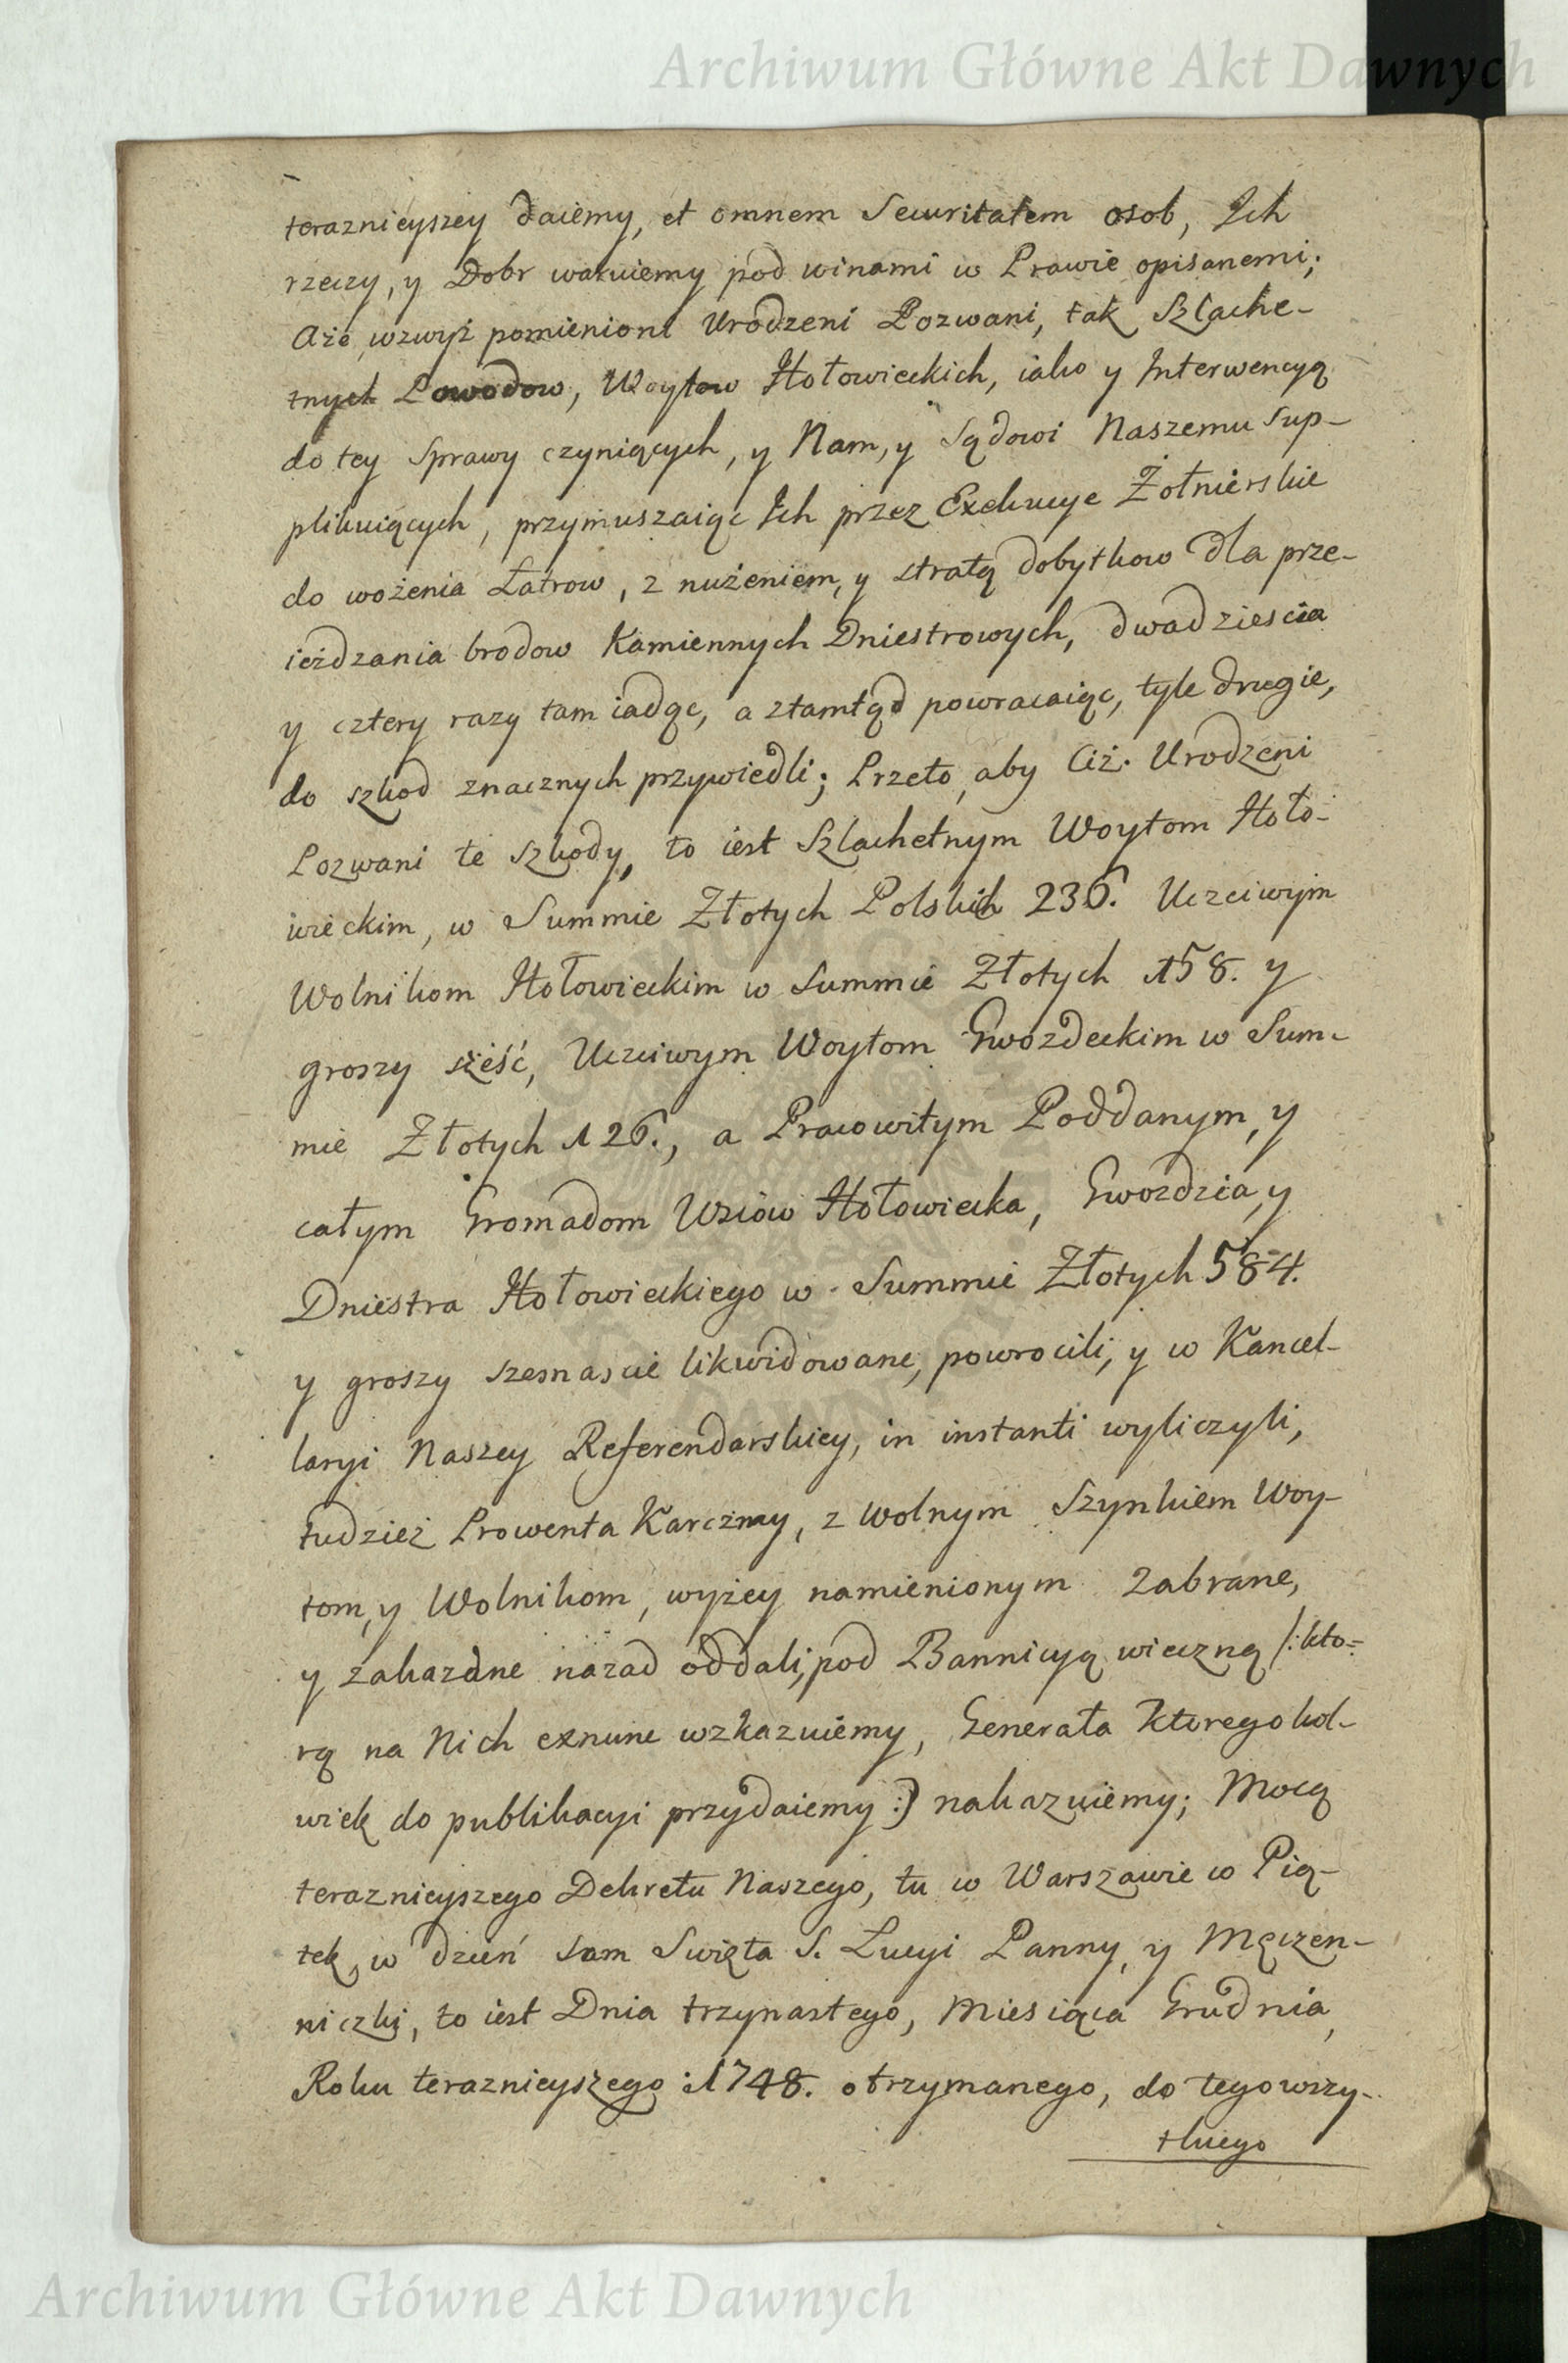 Archiwum Główne Akt Dawnych
teraznieyszey daiemy, et omnem Securitatem osob, Ich
rzeczy, y Dobr waruiemy pod winami w Prawie opisanemi;
Aże wzwyż pomienioni Urodzeni Pozwani, tak Szlache-
tnych Powodow, Woytow Hołowieckich, iako y Interwencyą
do tey Sprawy czyniących, y Nam, y Sądowi Naszemu Sup-
plikuiących, przymuszaiąc Ich przez Exekucye Żołnierskie
do wożenia Łatrow, z nużeniem, y stratą dobytkow dla prze-
ieżdzania brodow Kamiennych Dniestrowych, dwadziescia
y cztery razy tam iadąc, a ztamtąd powracaiąc, tyle drugie,
do szkod znacznych przywiedli; Przeto, aby Ciż. Urodzeni
Pozwani te szkody, to iest Szlachetnym Woytom Hoło-
wieckim, w Summie Złotych Polskich 236. Uczciwym
Wolnikom Hołowieckim w Summie Złotych 158. y
groszy sześć, Uczciwym Woytom Gwozdeckim w Sum-
mie Złotych 126., a Pracowitym Poddanym, y
całym Gromadom Wsiow Hołowiecka, Gwozdzia, y
Dniestra Hołowieckiego w Summie Złotych 584.
y groszy szesnascie likwidowane, powrocili, y w Kancel-
laryi Naszey Referendarskiey, in instanti wyliczyli,
tudzież Prowenta Karczmy, z wolnym Szynkiem Woy-
tom, y Wolnikom, wyżey namienionym zabrane,
y zakazane nazad oddali, pod Bannicyą wieczną /: kto=
rą na Nich exnunc wzkazuiemy, Generała ktoregokol-
wiek do publikacyi przydaiemy :) nakazuiemy; Mocą
teraznieyszego Dekretu Naszego, tu w Warszawie w Pią-
tek, w dzień sam Swięta S. Lucyi Panny, y Męczen-
niczki, to iest Dnia trzynastego, Miesiąca Grudnia,
Roku teraznieyszego 1748. otrzymanego, do tego wszy-
tkiego
Archiwum Główne Akt Dawnych